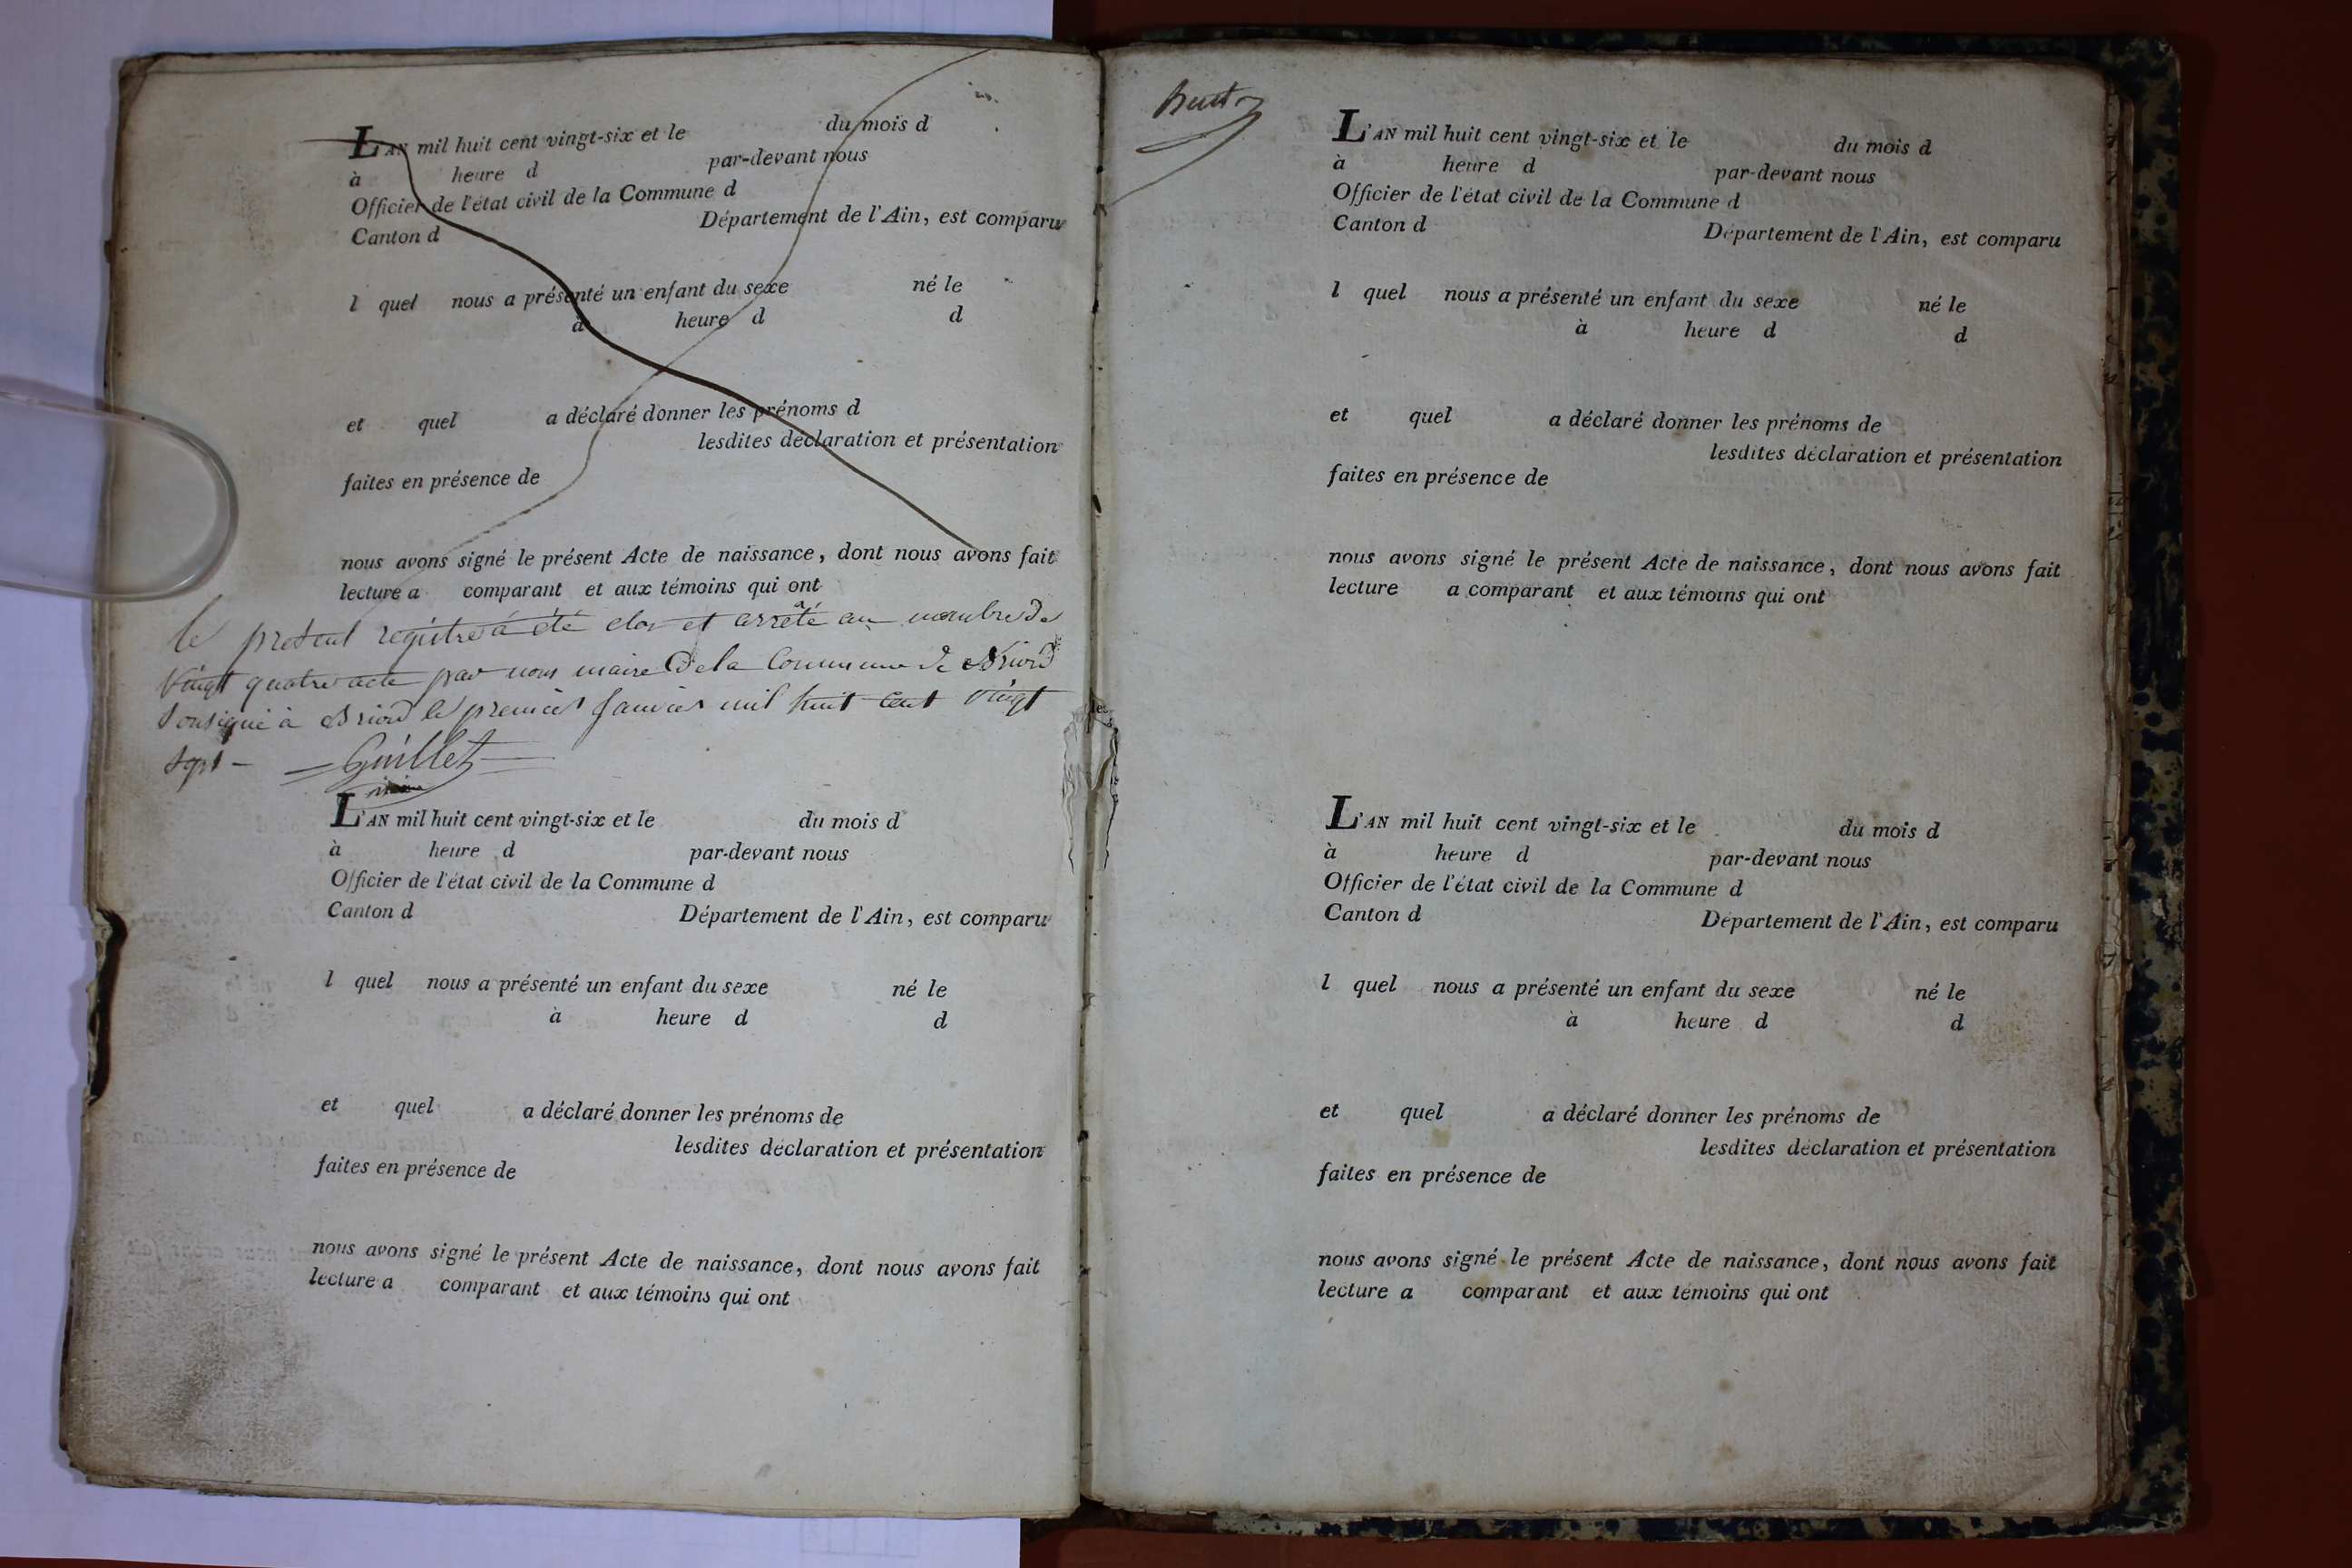 L'AN mil huit cent vingt-six et le du mois d
à heure d par-devant nous
Officier de l'état civil de la Commune d
Canton d Département de l'Ain, est comparu
l quel nous a présenté un enfant du sexe né le
à heure d d
et quel a déclaré donner les prénoms d
lesdites déclaration et présentation
faites en présence de
nous avons signé le présent Acte de naissance, dont nous avons fait
lecture a comparant et aux témoins qui ont
le présent registre a été clos et arrêté au nombre de
Vingt quatre acte par nous maire De la Commune de Briord
Soussigné à Briord le premier Janvier mil huit cent vingt
Sept - Guillet
L'AN mil huit cent vingt-six et le du mois d
à heure d par-devant nous
Officier de l'état civil de la Commune d
Canton d Département de l'Ain, est comparu
l quel nous a présenté un enfant du sexe né le
à heure d d
et quel a déclaré donner les prénoms de
lesdites déclaration et présentation
faites en présence de
nous avons signé le présent Acte de naissance, dont nous avons fait
lecture a comparant et aux témoins qui ont
L'AN mil huit cent vingt-six et le du mois d
à heure d par-devant nous
Officier de l'état civil de la Commune d
Canton d Département de l'Ain, est comparu
l quel nous a présenté un enfant du sexe né le
à heure d d
et quel a déclaré donner les prénoms de
lesdites déclaration et présentation
faites en présence de
nous avons signé le présent Acte de naissance, dont nous avons fait
lecture a comparant et aux témoins qui ont
L'AN mil huit cent vingt-six et le du mois d
à heure d par-devant nous
Officier de l'état civil de la Commune d
Canton d Département de l'Ain, est comparu
l quel nous a présenté un enfant du sexe né le
à heure d d
et quel a déclaré donner les prénoms de
lesdites déclaration et présentation
faites en présence de
nous avons signé le présent Acte de naissance, dont nous avons fait
lecture a comparant et aux témoins qui ont